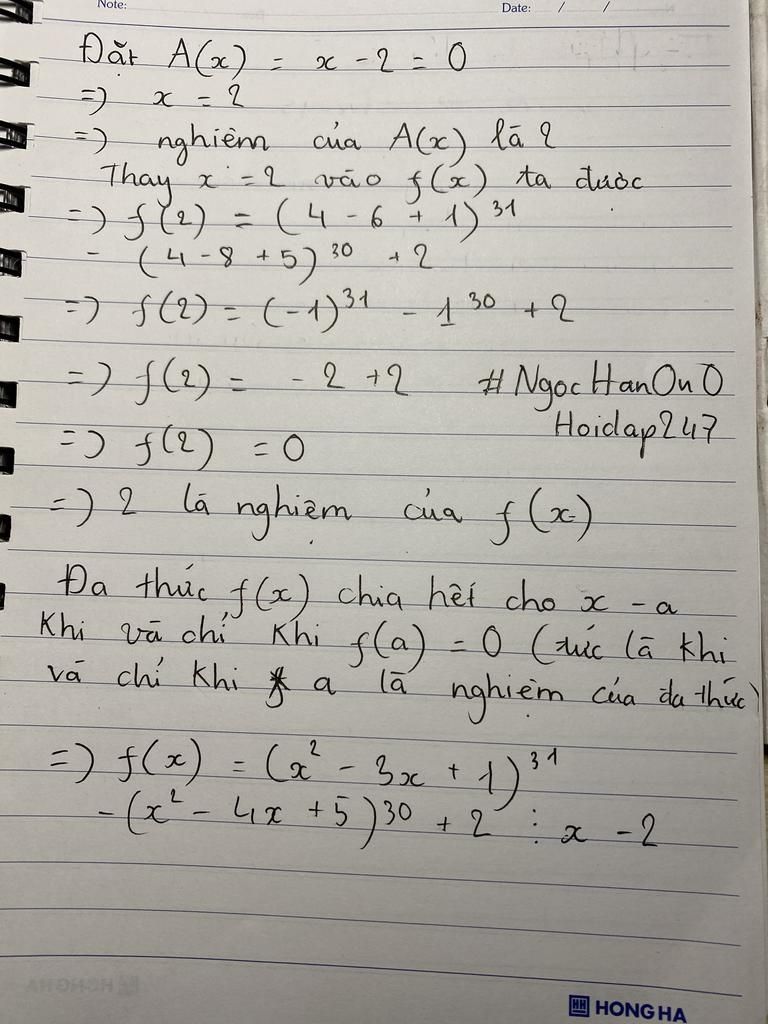 Note:
Date: / /
Đặt A(x) = x - 2 = 0
=> x = 2
=> nghiệm của A(x) là 2
Thay x = 2 vào f(x) ta được
=> f(2) = (4 - 6 + 1)³¹
- (4 - 8 + 5)³⁰ + 2
=> f(2) = (-1)³¹ - 1³⁰ + 2
=> f(2) = - 2 + 2 #NgocHanOnO
Hoidap247
=> f(2) = 0
=> 2 là nghiệm của f(x)
Đa thức f(x) chia hết cho x - a
Khi và chỉ khi f(a) = 0 (tức là khi
và chỉ khi a là nghiệm của đa thức)
=> f(x) = (x² - 3x + 1)³¹
- (x² - 4x + 5)³⁰ + 2 ⋮ x - 2
HONG HA